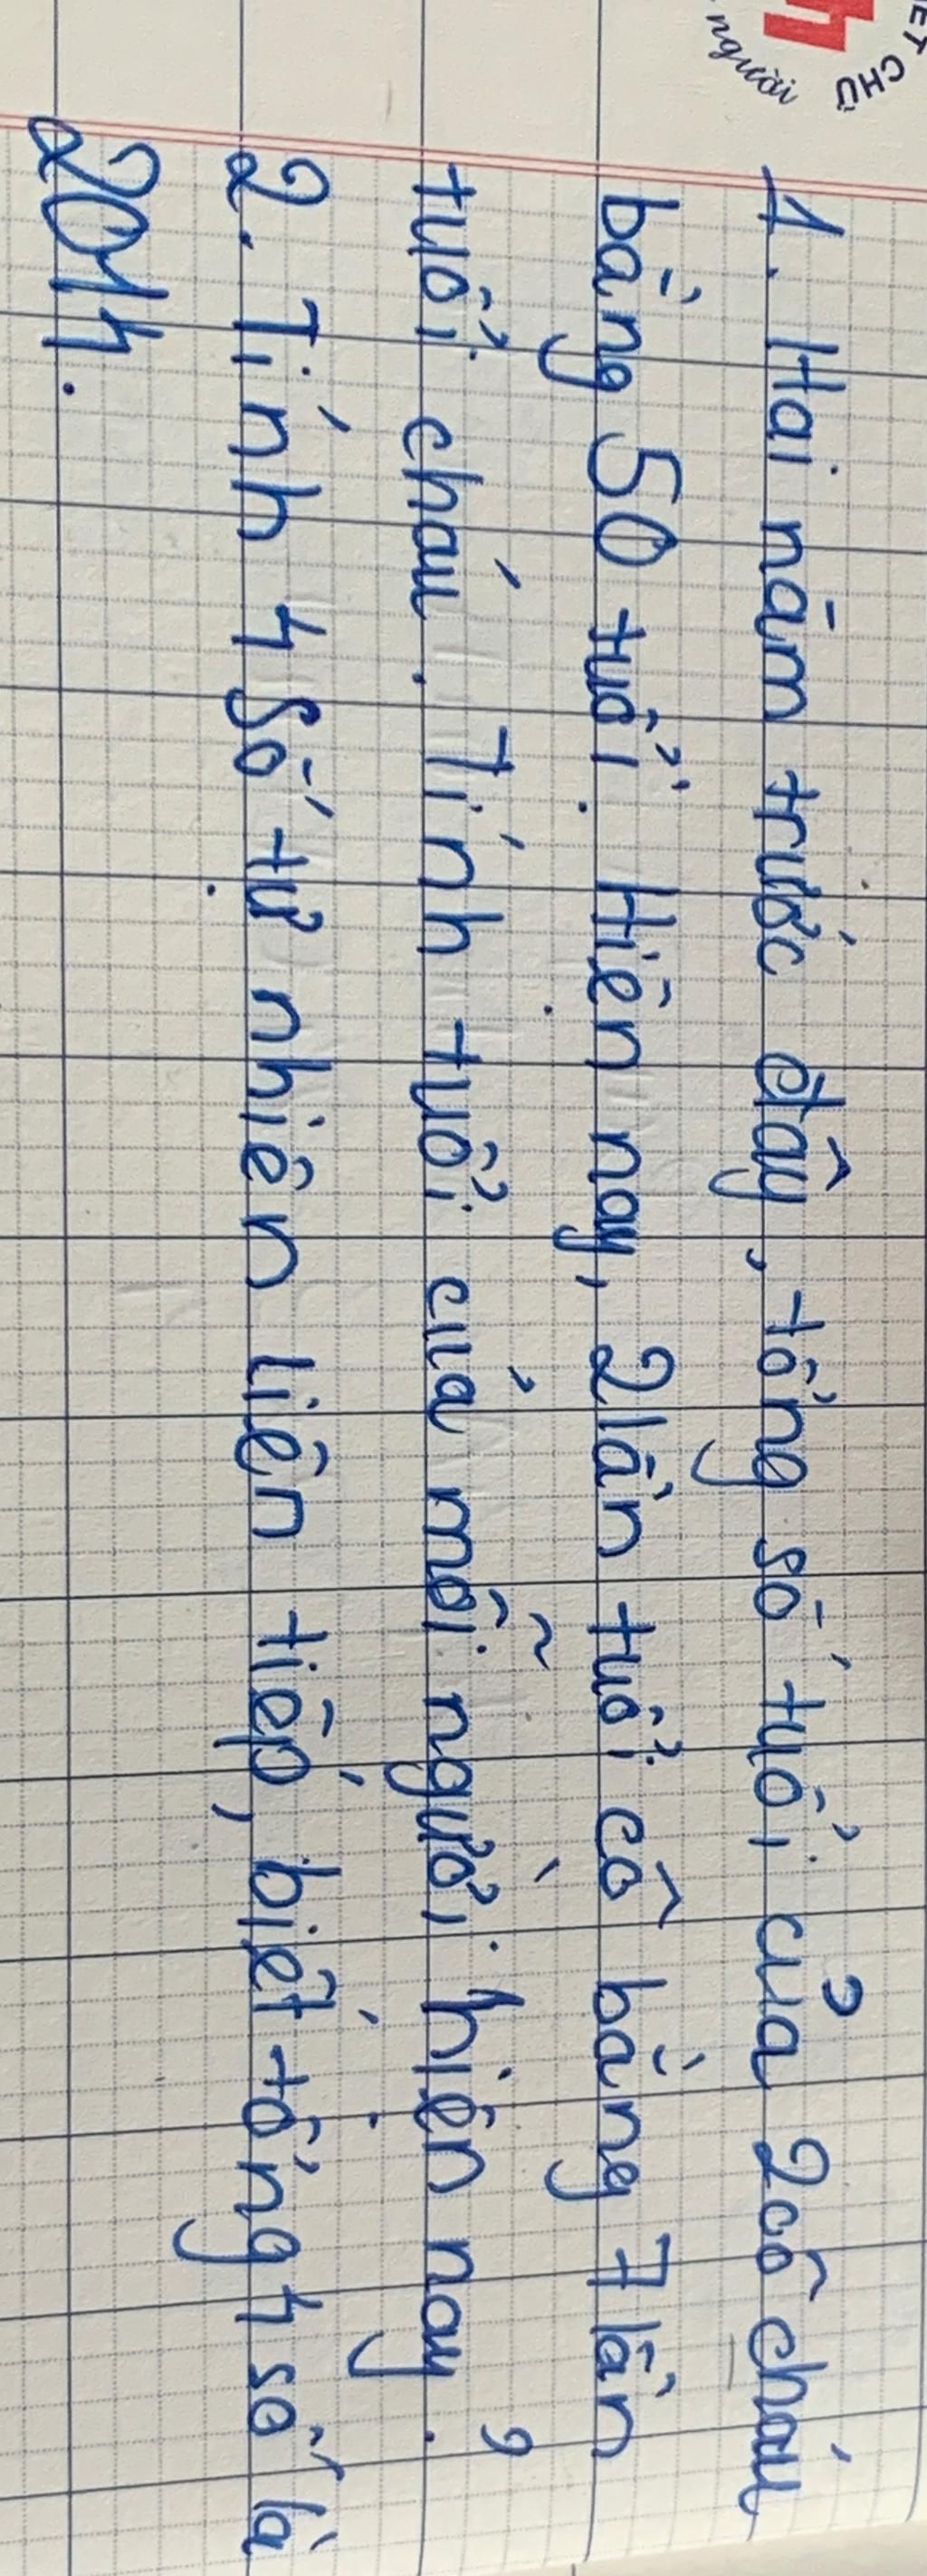 ẾT CHỮ
người
1. Hai năm trước đây, tổng số tuổi của 2 cô cháu
bằng 50 tuổi. Hiện nay, 2 lần tuổi cô bằng 7 lần
tuổi cháu. Tính tuổi của mỗi người hiện nay. ?
2. Tính 4 số tự nhiên liên tiếp, biết tổng 4 số là
2014.